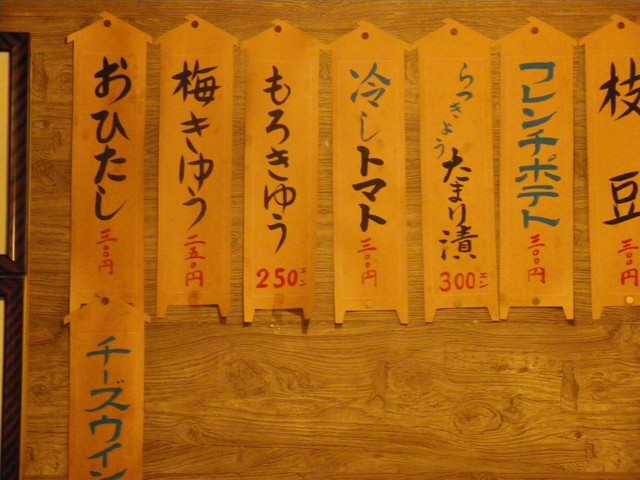 枝豆
三〇〇円
フレンチポテト
三〇〇円
らっきょう
たまり漬
300エン
冷しトマト
三〇〇円
もろきゅう
250エン
梅きゅう
二五〇円
おひたし
三〇〇円
チーズウイン